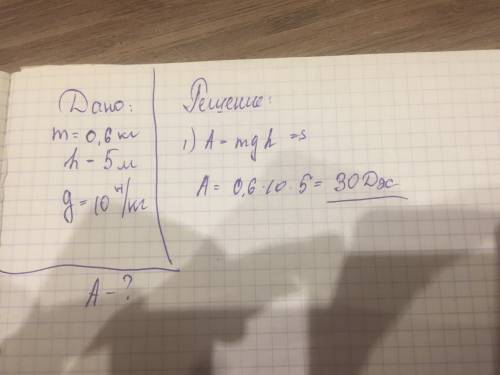 Дано:
m = 0,6 кг
h - 5 м
g = 10 н/кг
A - ?
Решение:
1) A = mgh =>
A = 0,6 · 10 · 5 = 30 Дж